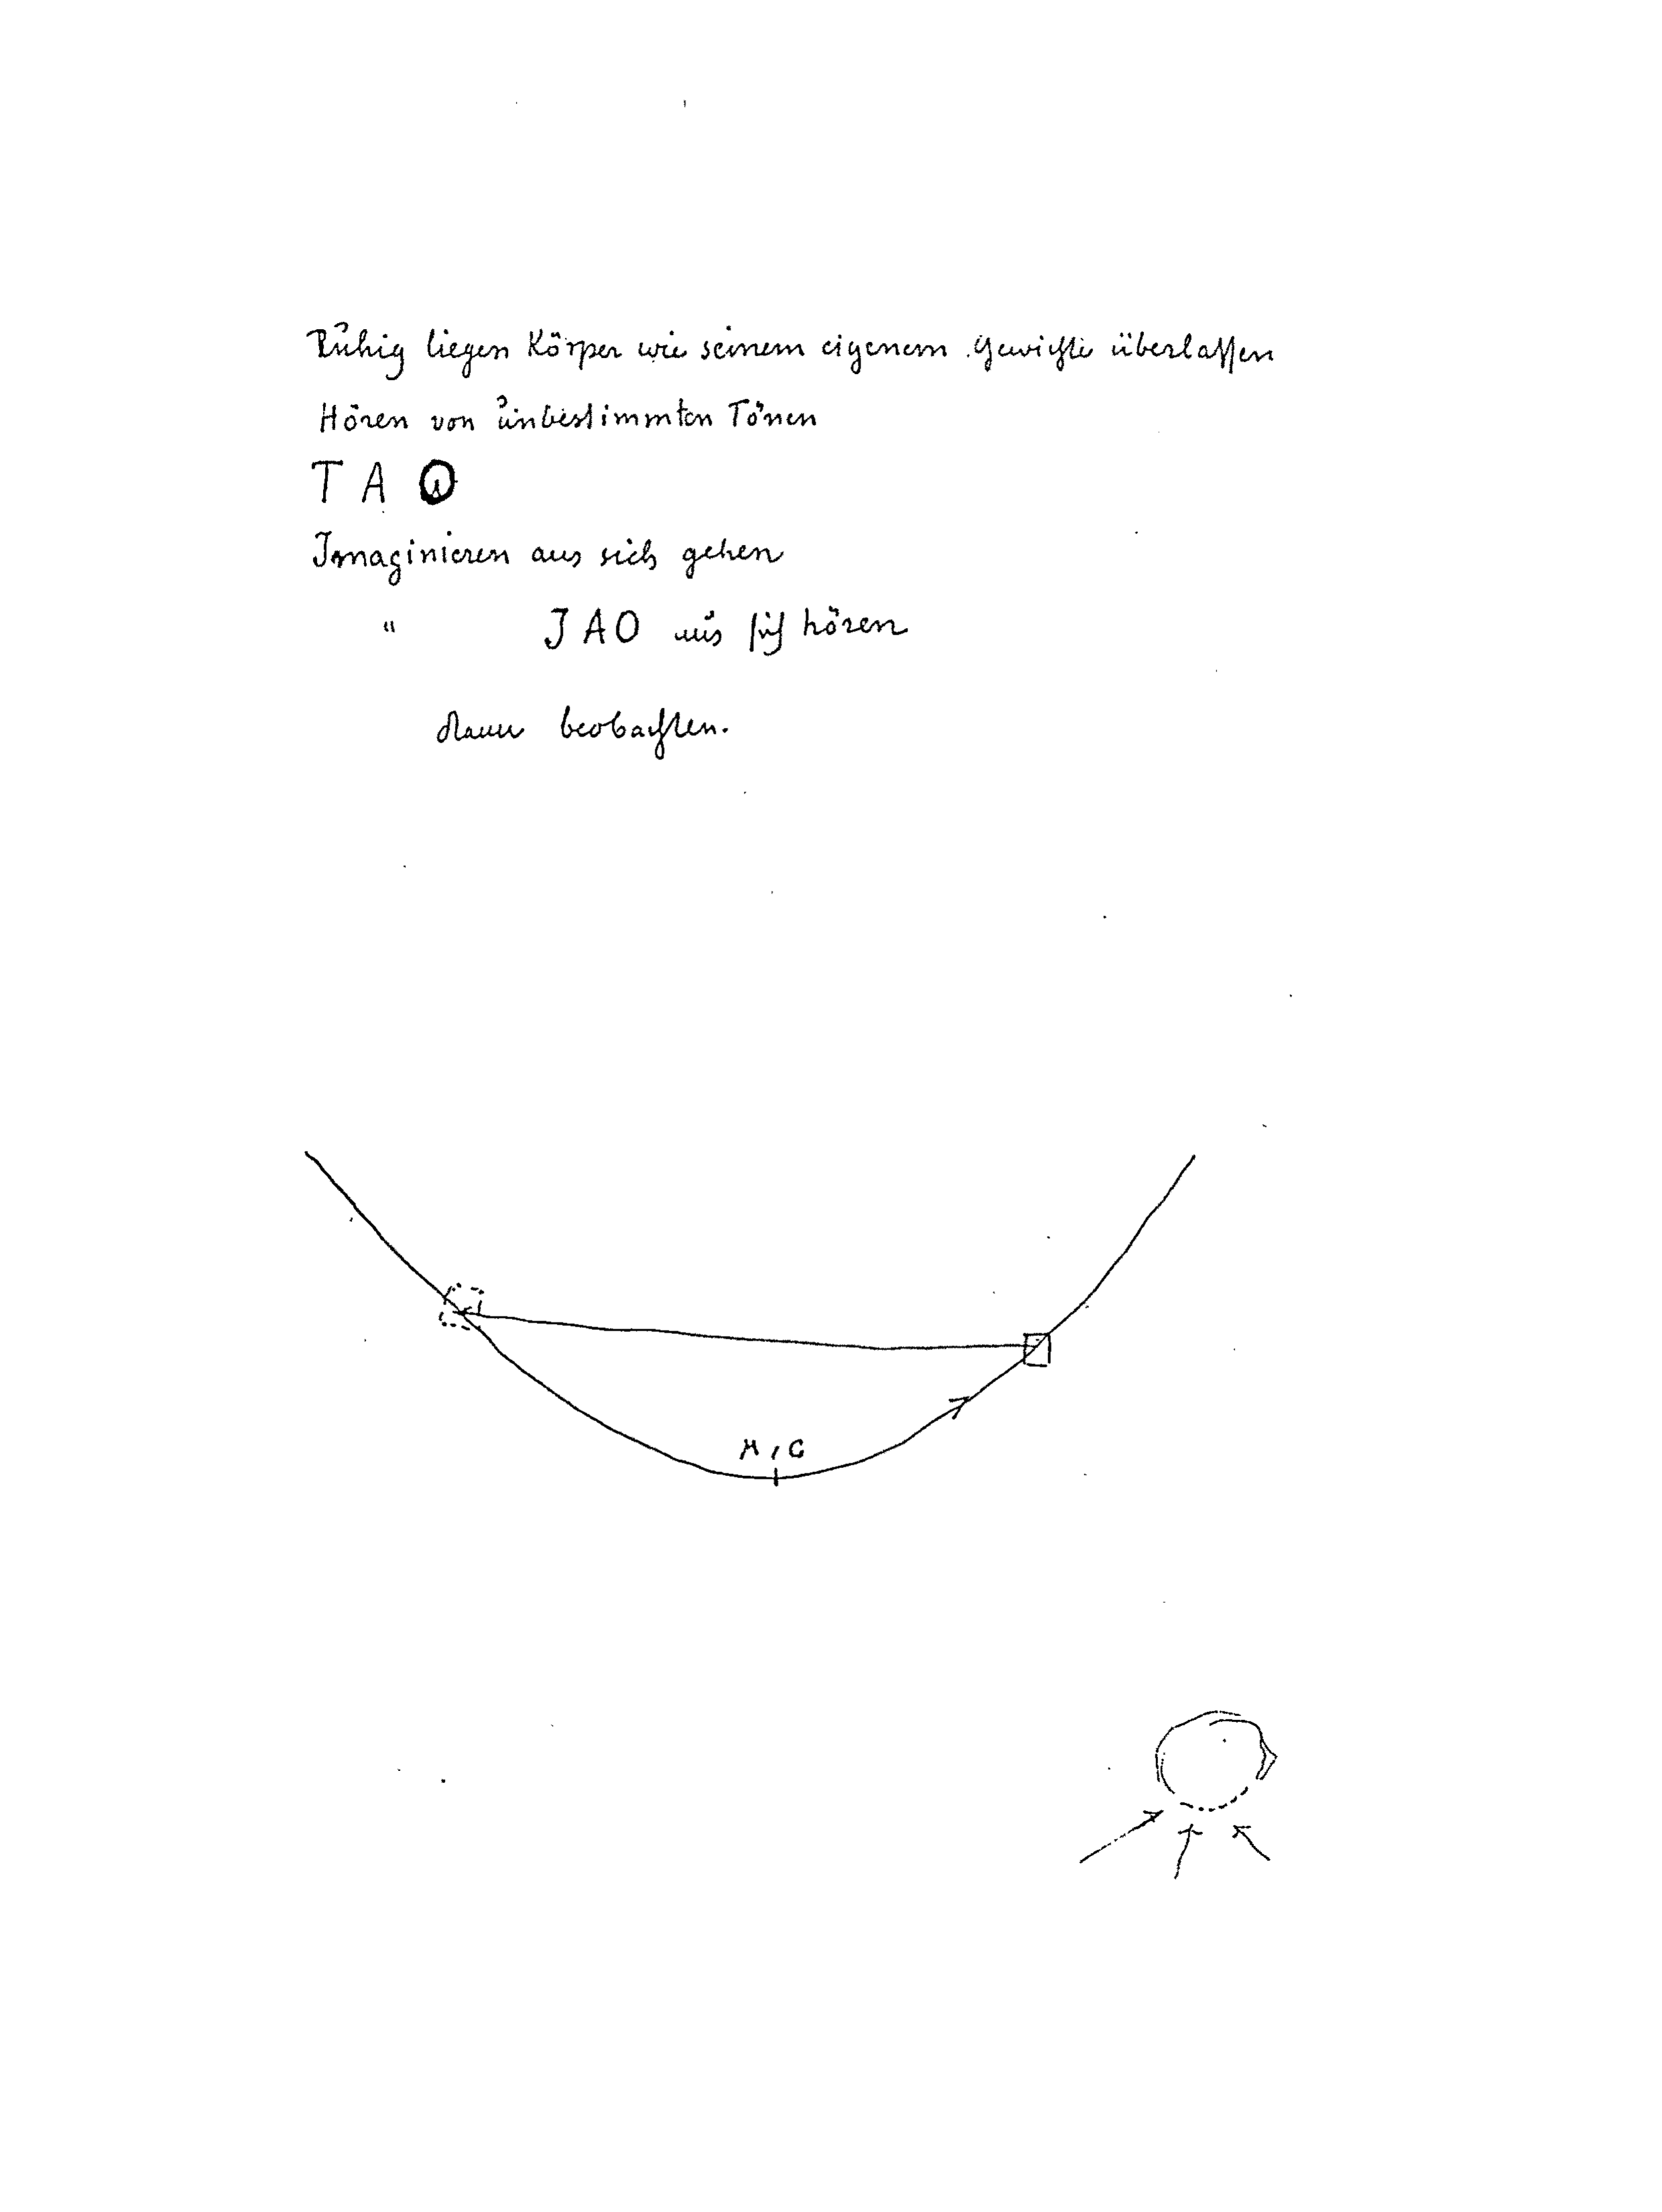 Ruhig liegen Körper wie seinem eigenem Gewichte überlassen
Hören von unbestimmten Tönen
T A O
Imaginieren aus sich gehen
" J A O aus sich hören
dann beobachten.
M, C